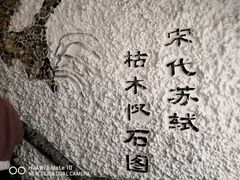 宋代苏轼
枯木怪石图
HUAWEI Mate 10
NEW LEICA DUAL CAMERA